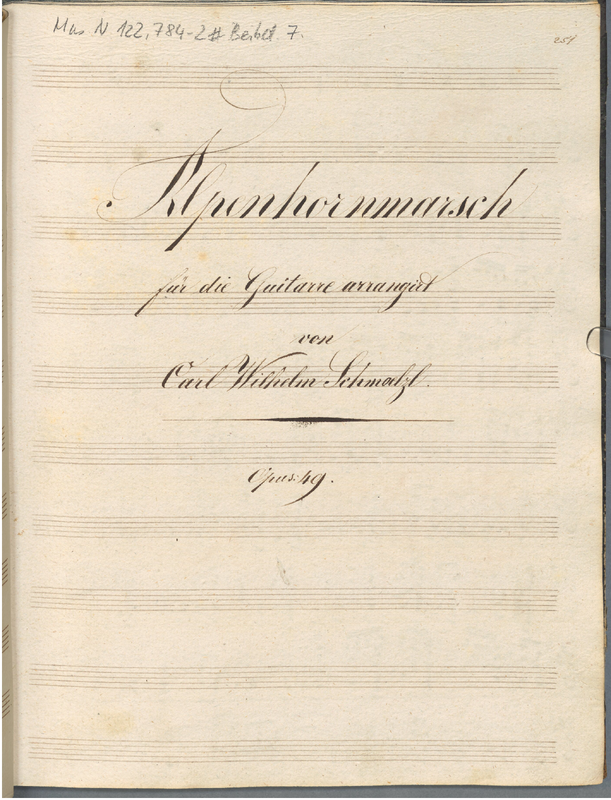 Mus N 122,784-2# Beibd. 7.
257
Alpenhornmarsch
für die Guitarre arrangirt
von
Carl Wilhelm Schmalzl.
Opus: 49.